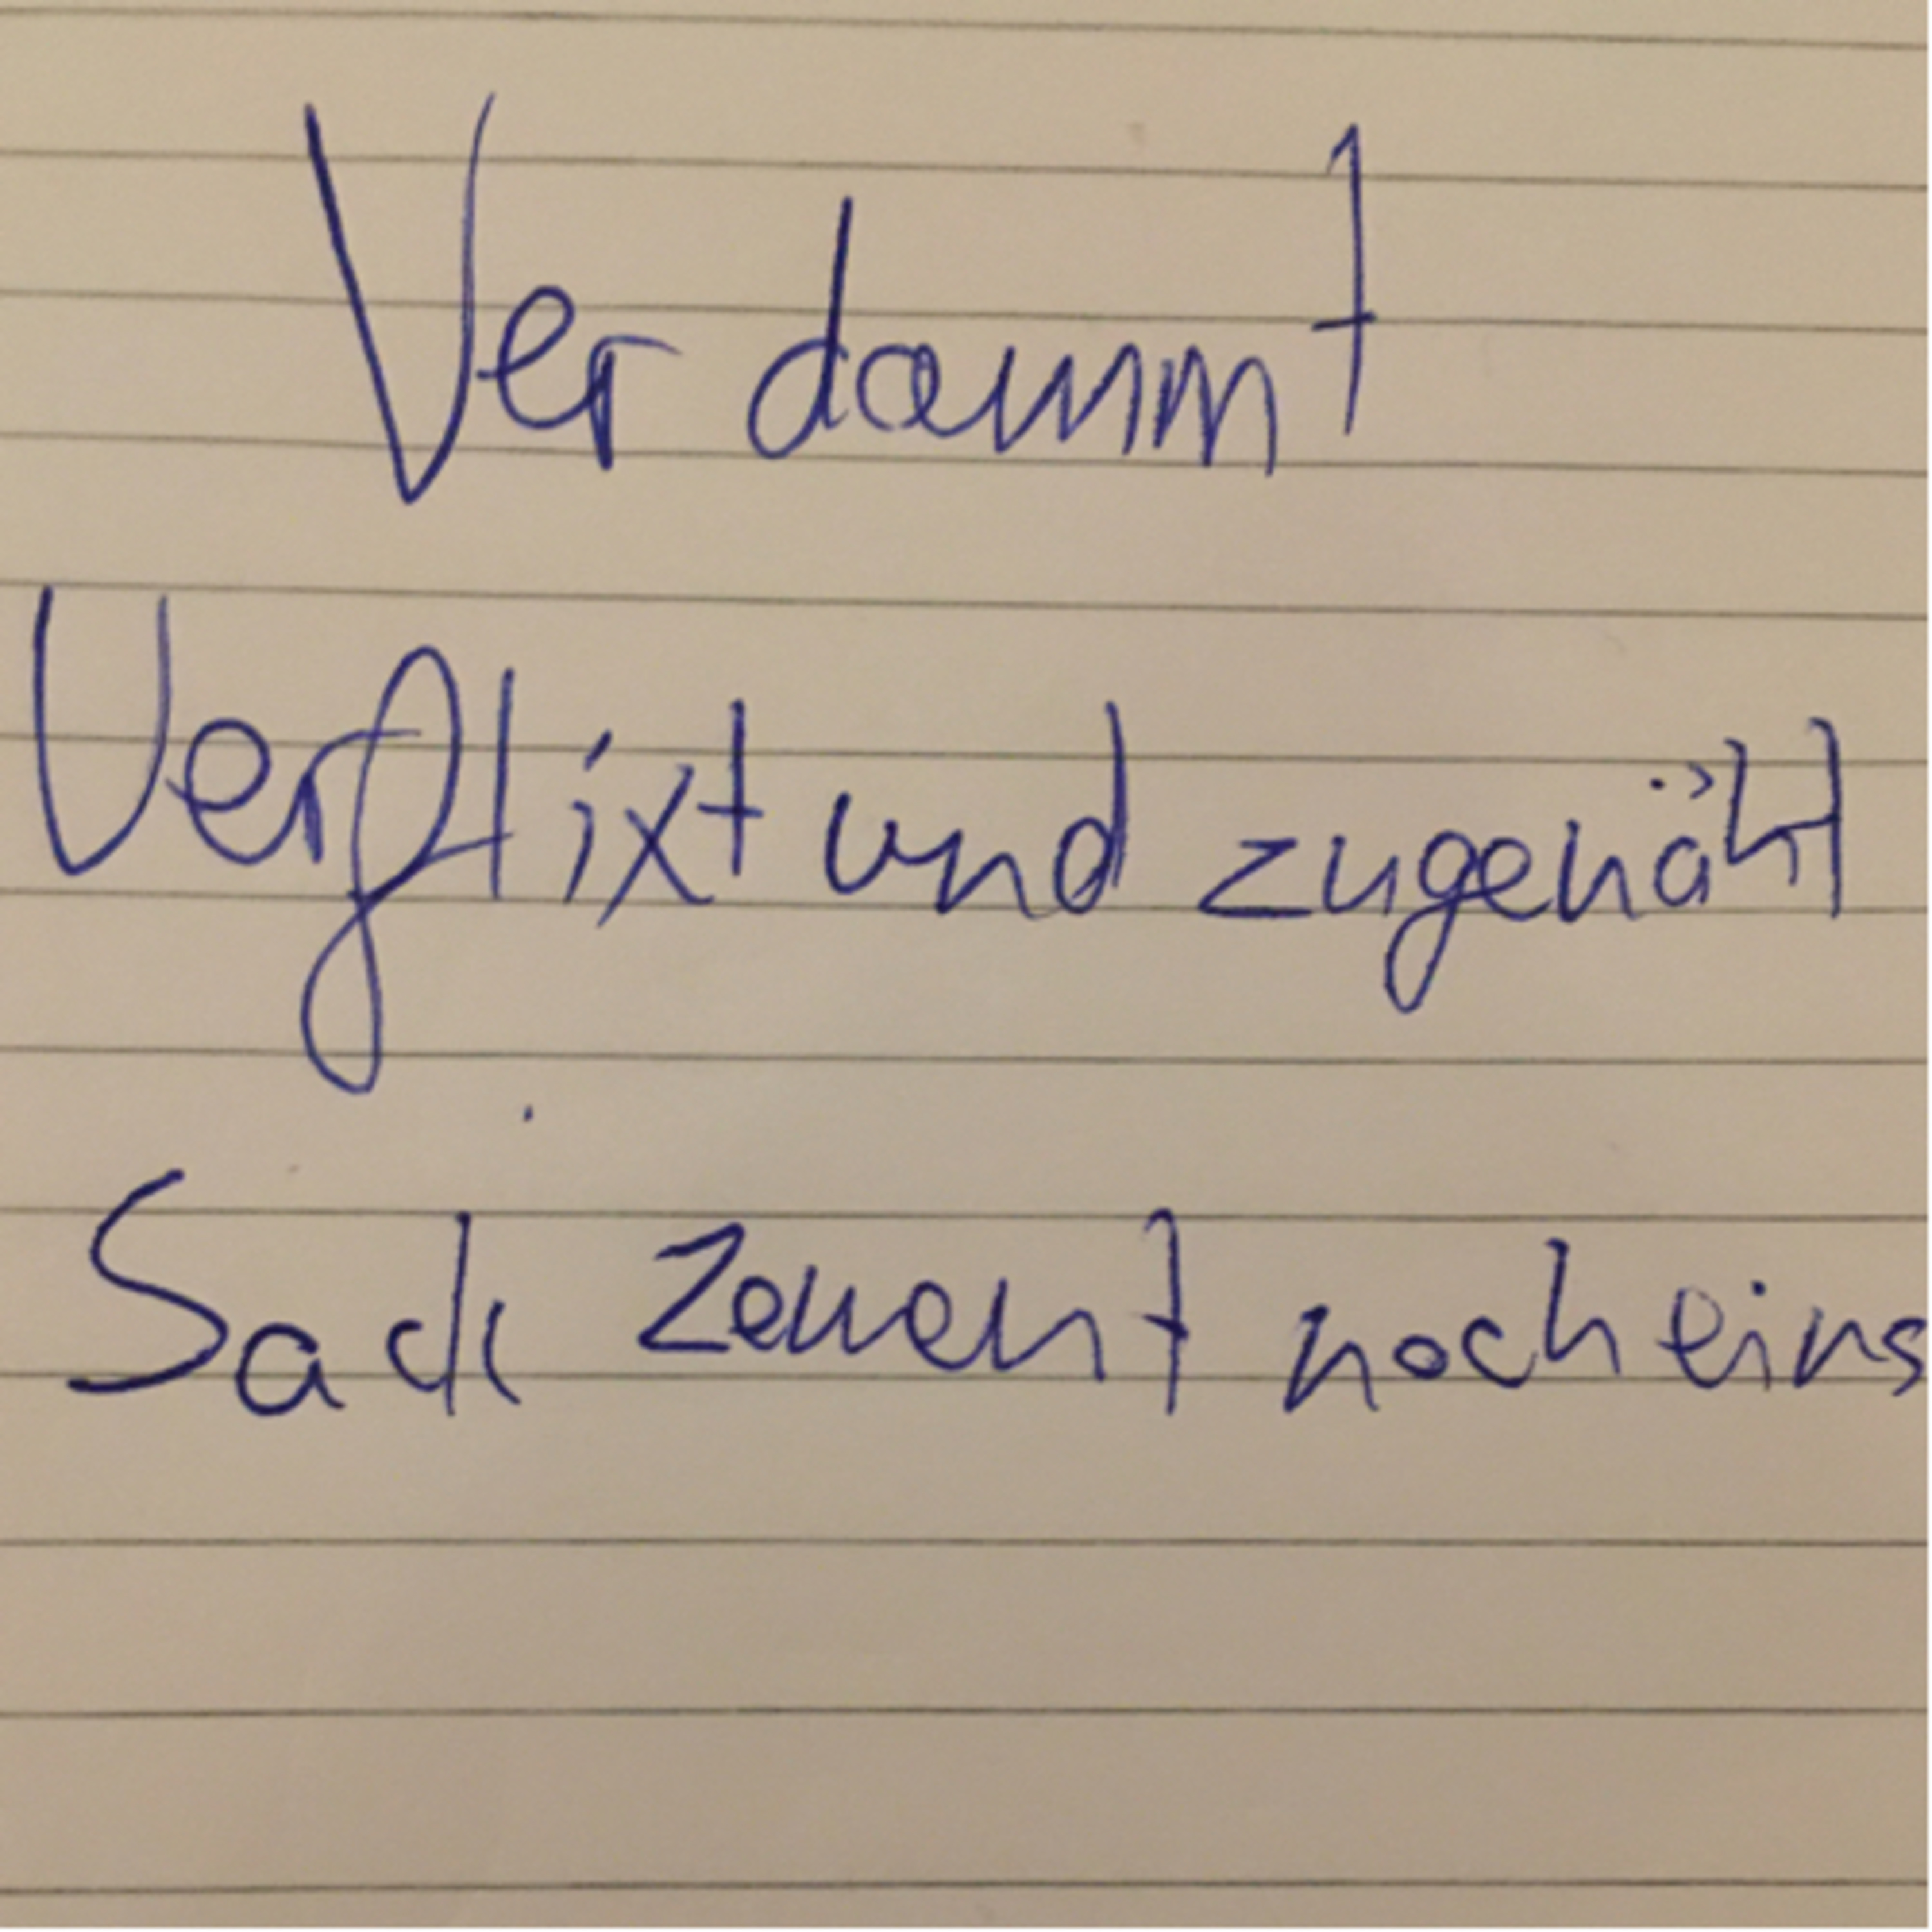 Verdammt
Verflixt und zugenäht
Sack Zement noch eins